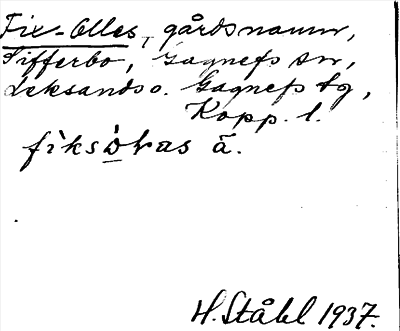 Fix-Olles, gårdsnamn,
Sifferbo, Gagnefs sn,
Leksands o. Gagnefs tg,
Kopp. l.
H. Ståhl 1937.